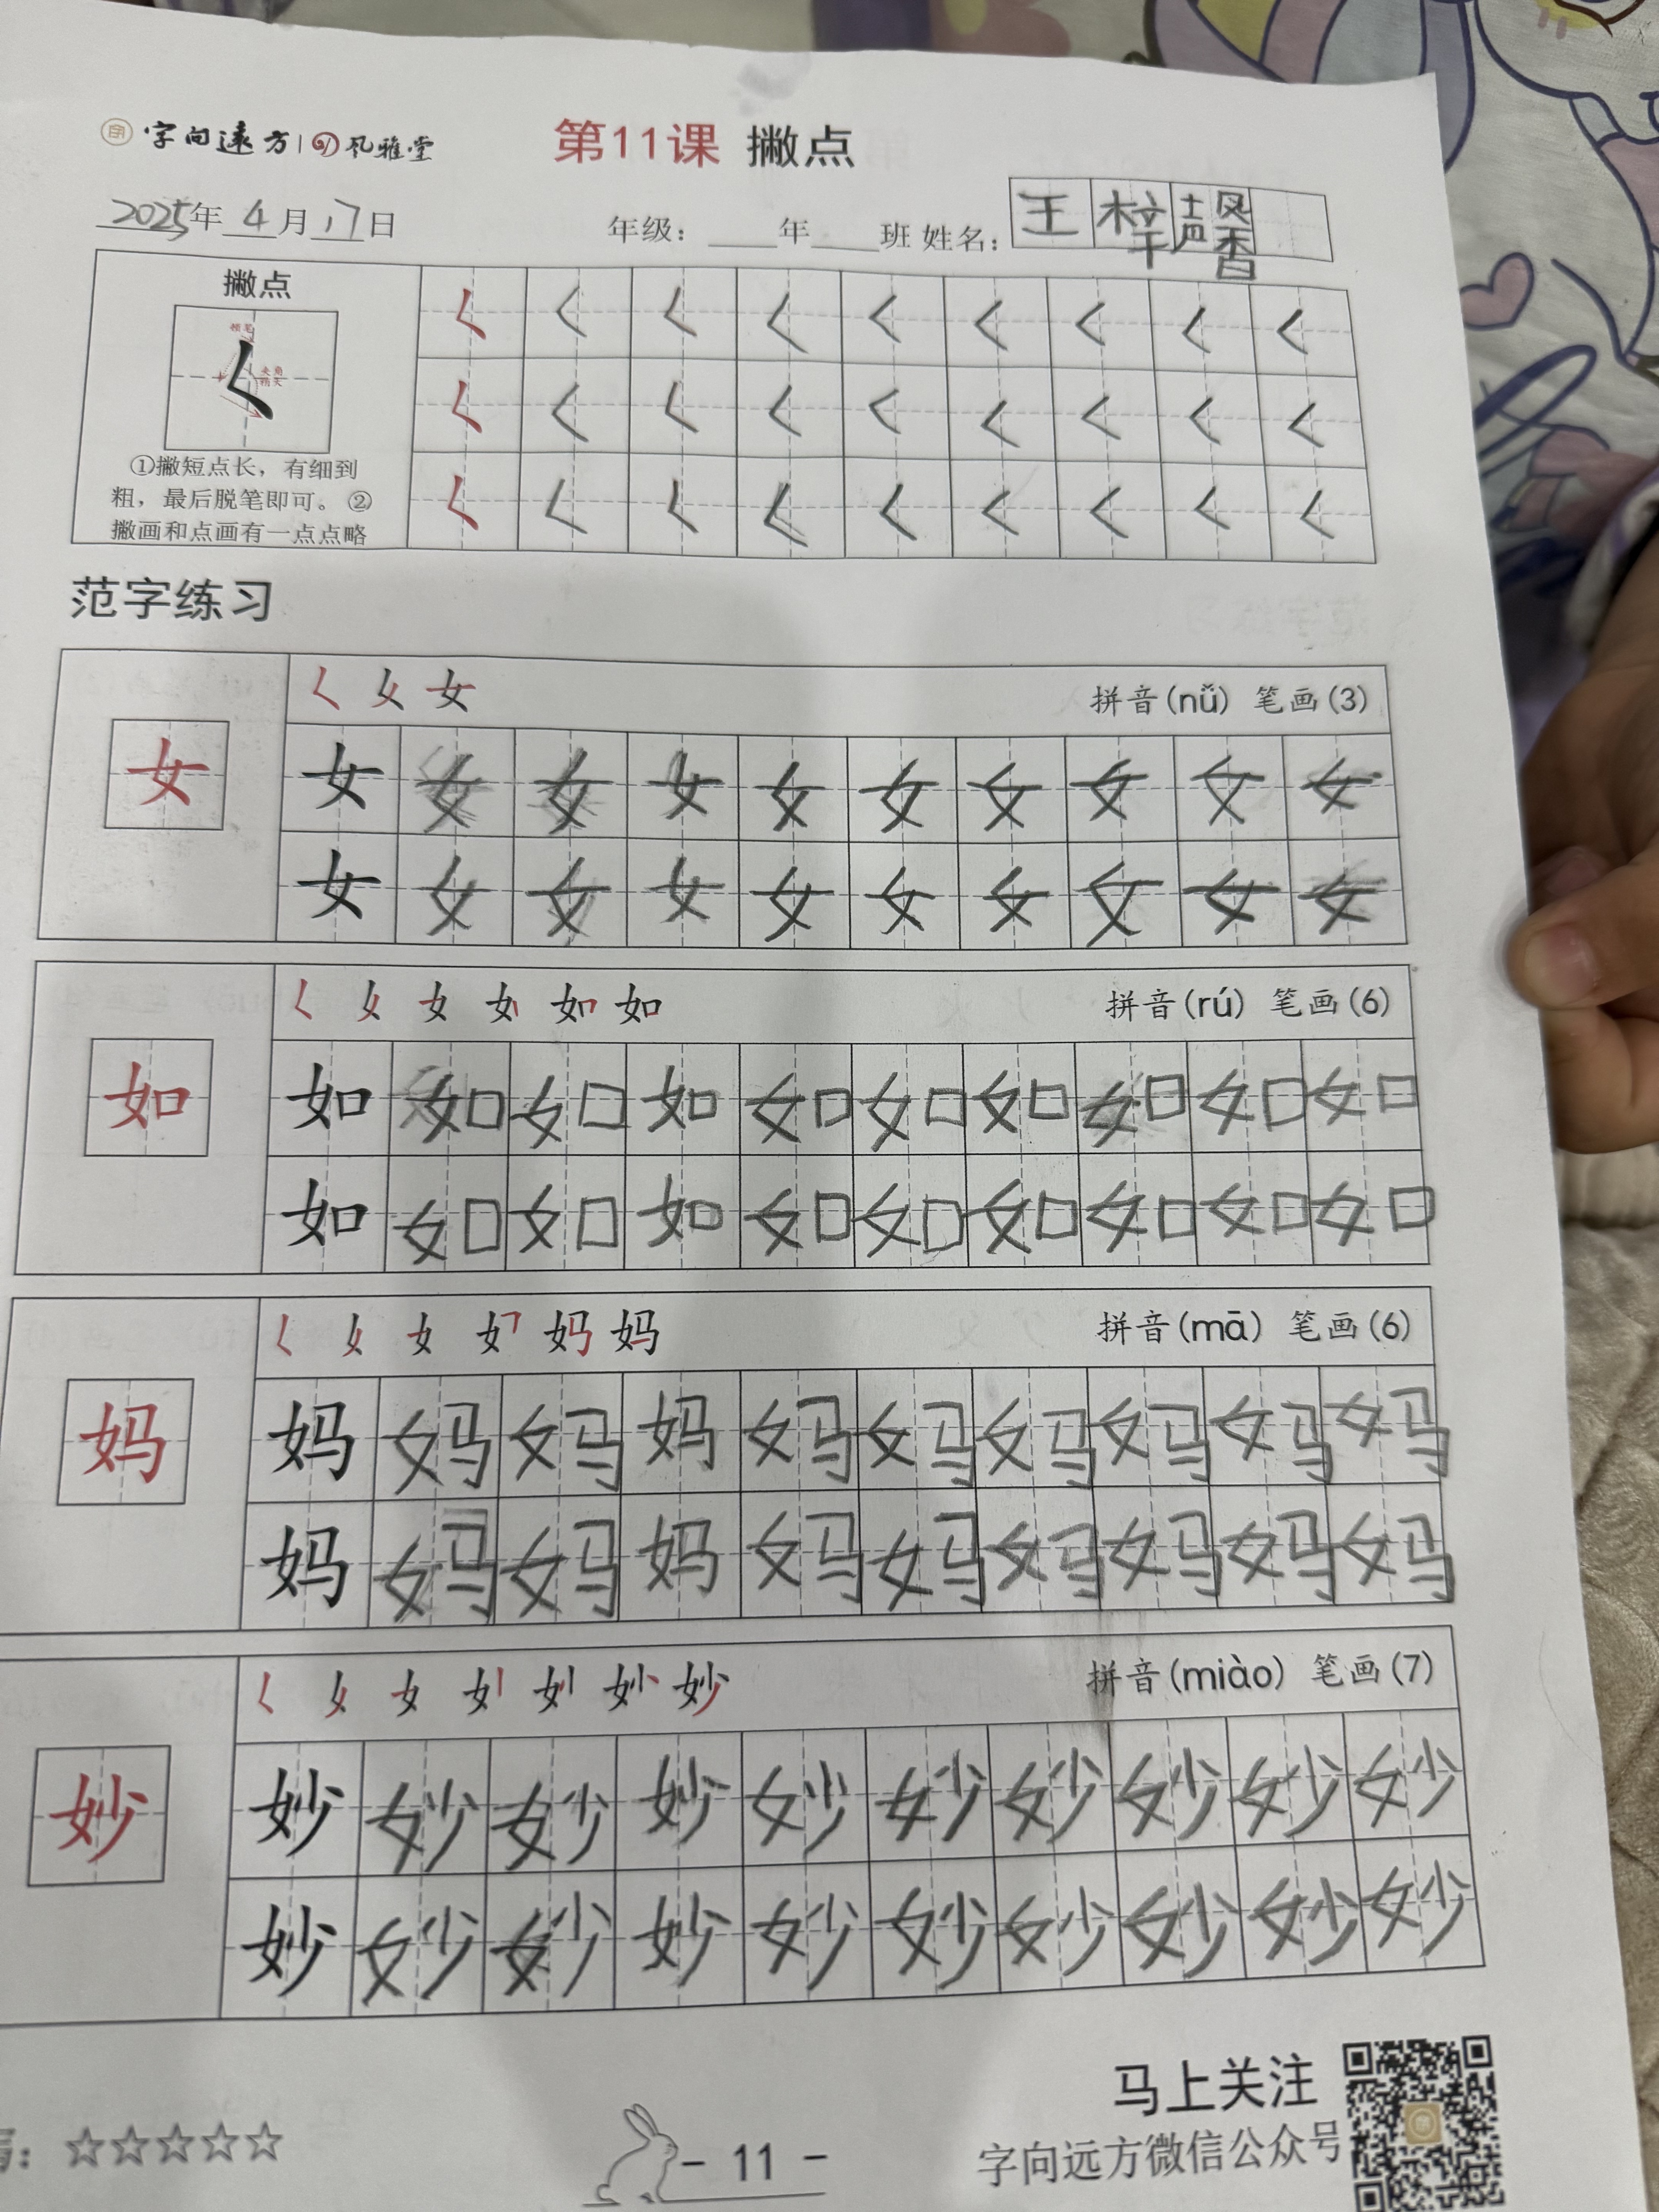 字向远方 风雅堂 第11课 撇点
2025年 4月17日 年级：____年____班 姓名：王梓馨
撇点
顿笔
夹角
稍大
①撇短点长，有细到
粗，最后脱笔即可。②
撇画和点画有一点点略
范字练习
拼音(nǚ) 笔画(3)
女 女 女 女 女 女 女 女 女 女 女
女 女 女 女 女 女 女 女 女 女
拼音(rú) 笔画(6)
如 如 如 如 如 如 如 如 如 如 如
如 如 如 如 如 如 如 如 如 如
拼音(mā) 笔画(6)
妈 妈 妈 妈 妈 妈 妈 妈 妈 妈 妈
妈 妈 妈 妈 妈 妈 妈 妈 妈 妈
拼音(miào) 笔画(7)
妙 妙 妙 妙 妙 妙 妙 妙 妙 妙 妙
妙 妙 妙 妙 妙 妙 妙 妙 妙 妙
马上关注
☆☆☆☆☆ - 11 - 字向远方微信公众号